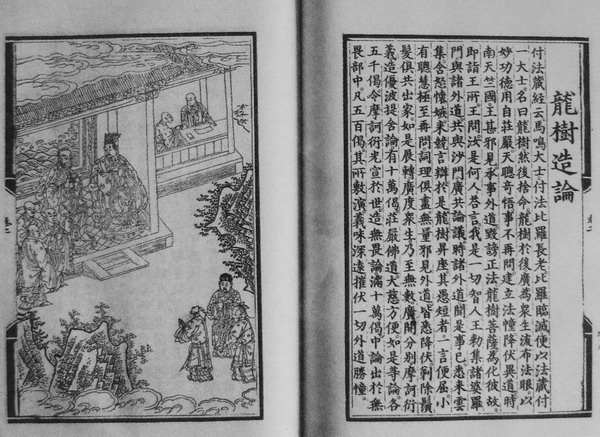 龍樹造論
付法藏經云馬鳴大士付法比羅長老比羅臨滅便以法藏付
一大士名曰龍樹然後捨命龍樹於後廣為眾生流布法眼以
妙功德用自莊嚴天聰奇悟事不再問建立法幢降伏異道時
南天竺國王甚邪見承事外道毀謗正法龍樹菩薩為化彼故
即詣王所王問汝是何人答言我是一切智人王勅集諸婆羅
門與諸外道共與沙門廣共論議時諸外道聞是事已悉來雲
集含怒懷嫉來競言辯於是龍樹昇座其愚短者一言便屈小
有聰慧極至再問詞理俱盡無量邪見外道皆悉降伏剃除鬚
髮俱共出家如是展轉廣度眾生乃至無數廣開分別摩訶衍
義造優波提舍論有十萬偈莊嚴佛道大慈方便如是等論各
五千偈令摩訶衍光宣於世造無畏論滿十萬偈中論出於無
畏部中凡五百偈其所敷演義味深遠摧伏一切外道勝幢